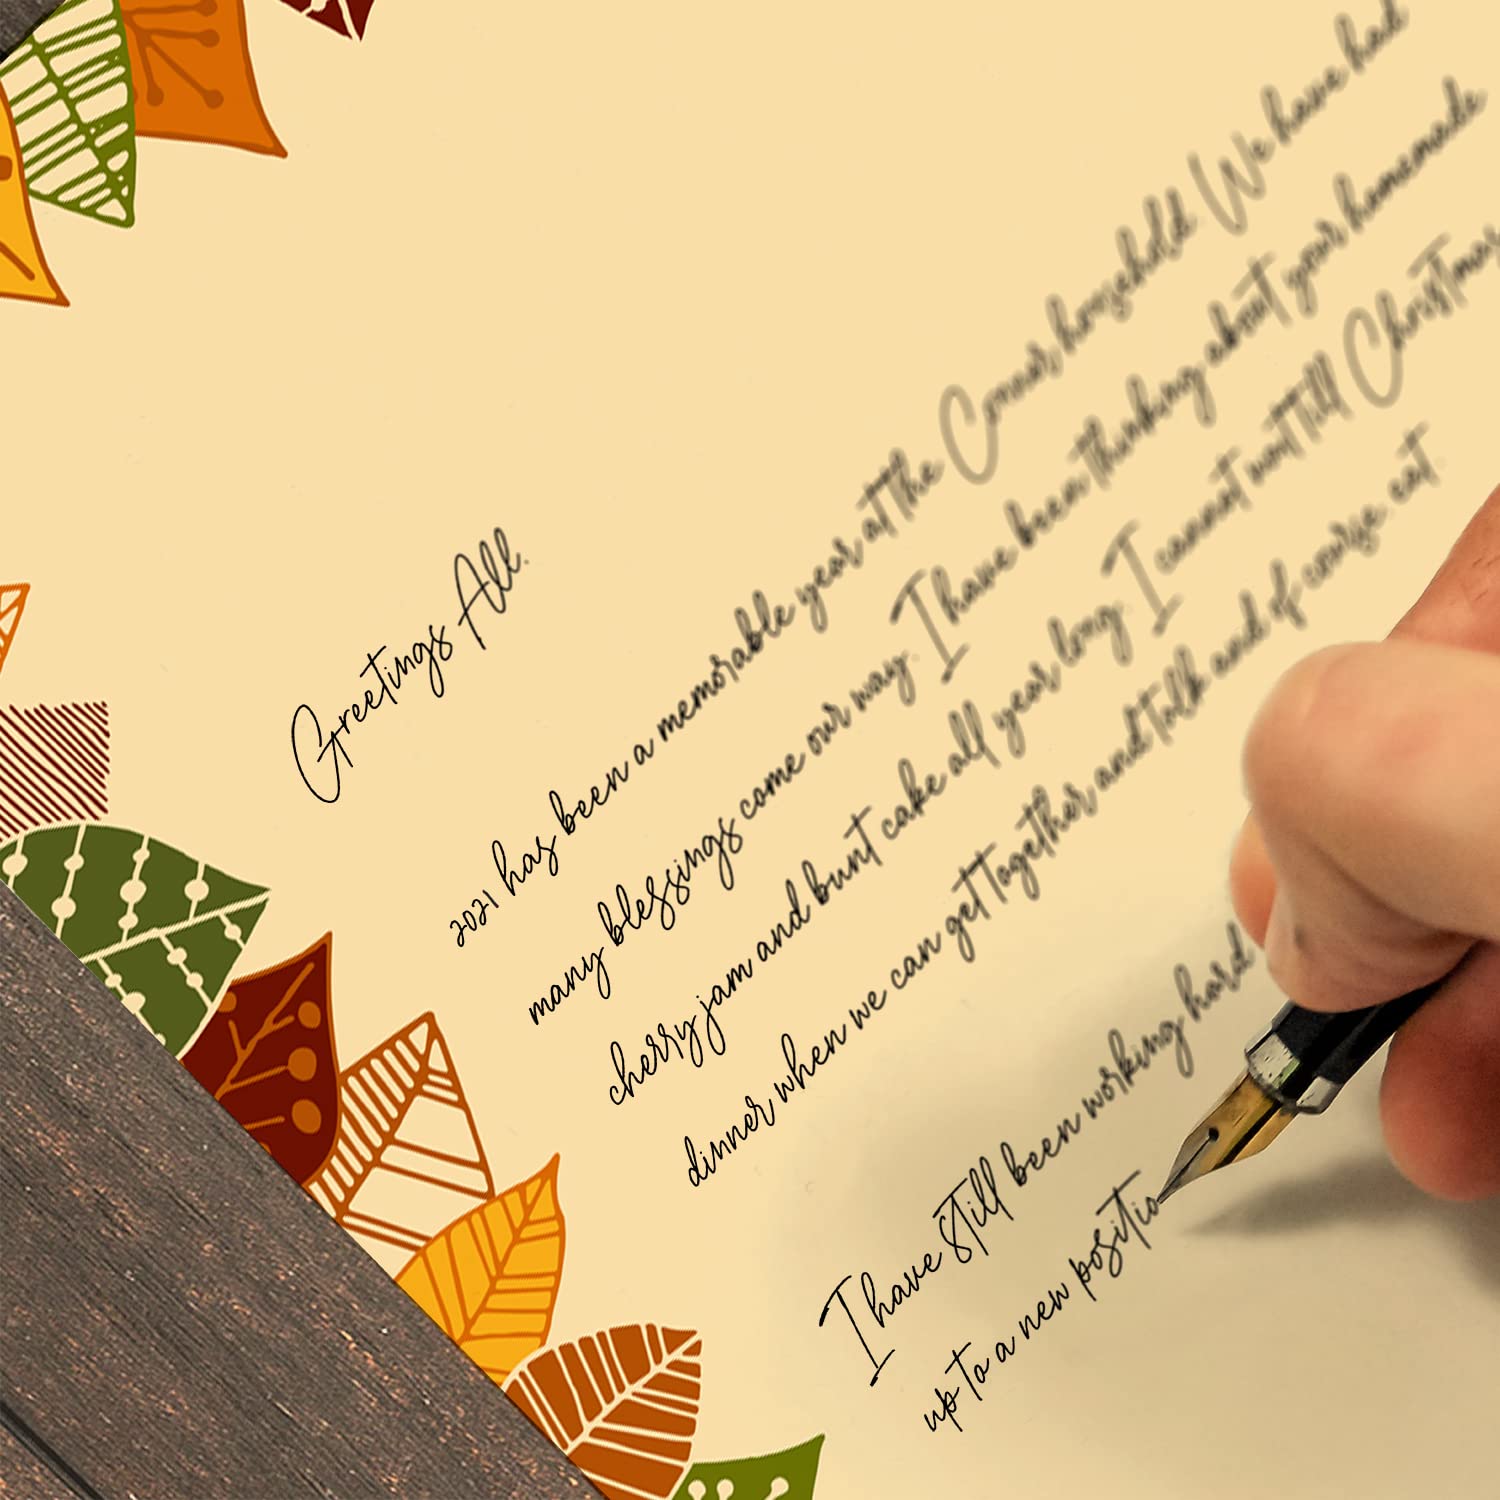 Greetings All.
2021 has been a memorable year at the Connor household We have had
many blessings come our way. I have been thinking about your homemade
cherry jam and bunt cake all year long I cannot wait till Christmas
dinner when we can get together and talk and of course eat.
I have still been working hard
up to a new positio